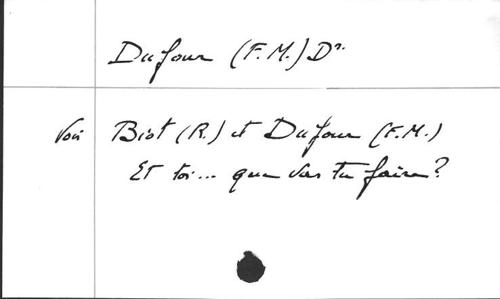 Dufour (F. M.) Dr.
Voir Biot (R.) et Dufour (F. M.)
Et toi... que vas tu faire?